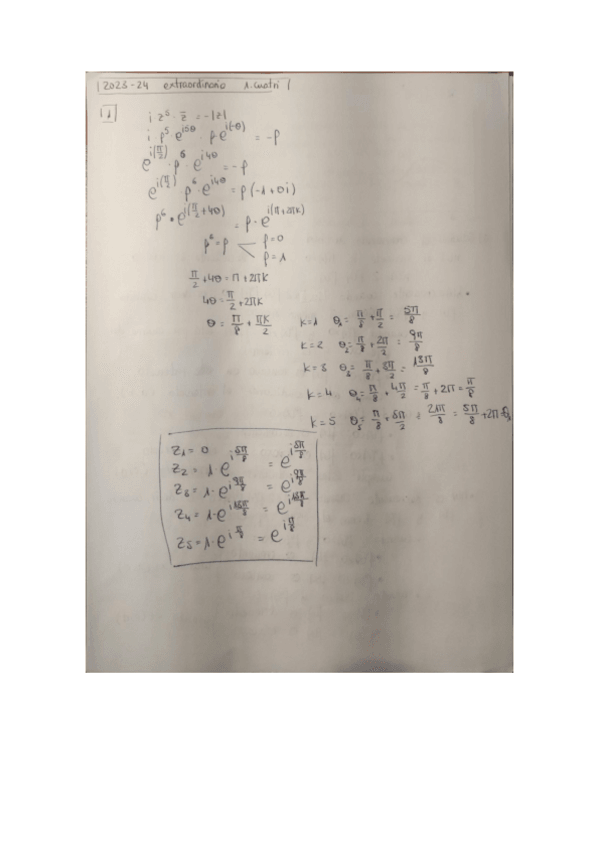 2023-24 extraordinario 1.cuatri
1
i z⁵ · z̄ = -|z|
i ρ⁵ e^{i5θ} · ρ e^{i(-θ)} = -ρ
e^{i(π/2)} · ρ⁶ · e^{i4θ} = -ρ
e^{i(π/2)} ρ⁶ · e^{i4θ} = ρ(-1+0i)
ρ⁶ · e^{i(π/2+4θ)} = ρ · e^{i(π+2πk)}
ρ⁶ = ρ < ρ=0
ρ=1
π/2 + 4θ = π + 2πk
4θ = π/2 + 2πk
θ = π/8 + πk/2
k=1 θ₁ = π/8 + π/2 = 5π/8
k=2 θ₂ = π/8 + 2π/2 = 9π/8
k=3 θ₃ = π/8 + 3π/2 = 13π/8
k=4 θ₄ = π/8 + 4π/2 = π/8 + 2π = π/8
k=5 θ₅ = π/8 + 5π/2 = 21π/8 = 5π/8 + 2π = θ₁
z₁ = 0
z₂ = 1 e^{i5π/8} = e^{i5π/8}
z₃ = 1 · e^{i9π/8} = e^{i9π/8}
z₄ = 1 · e^{i13π/8} = e^{i13π/8}
z₅ = 1 · e^{iπ/8} = e^{iπ/8}